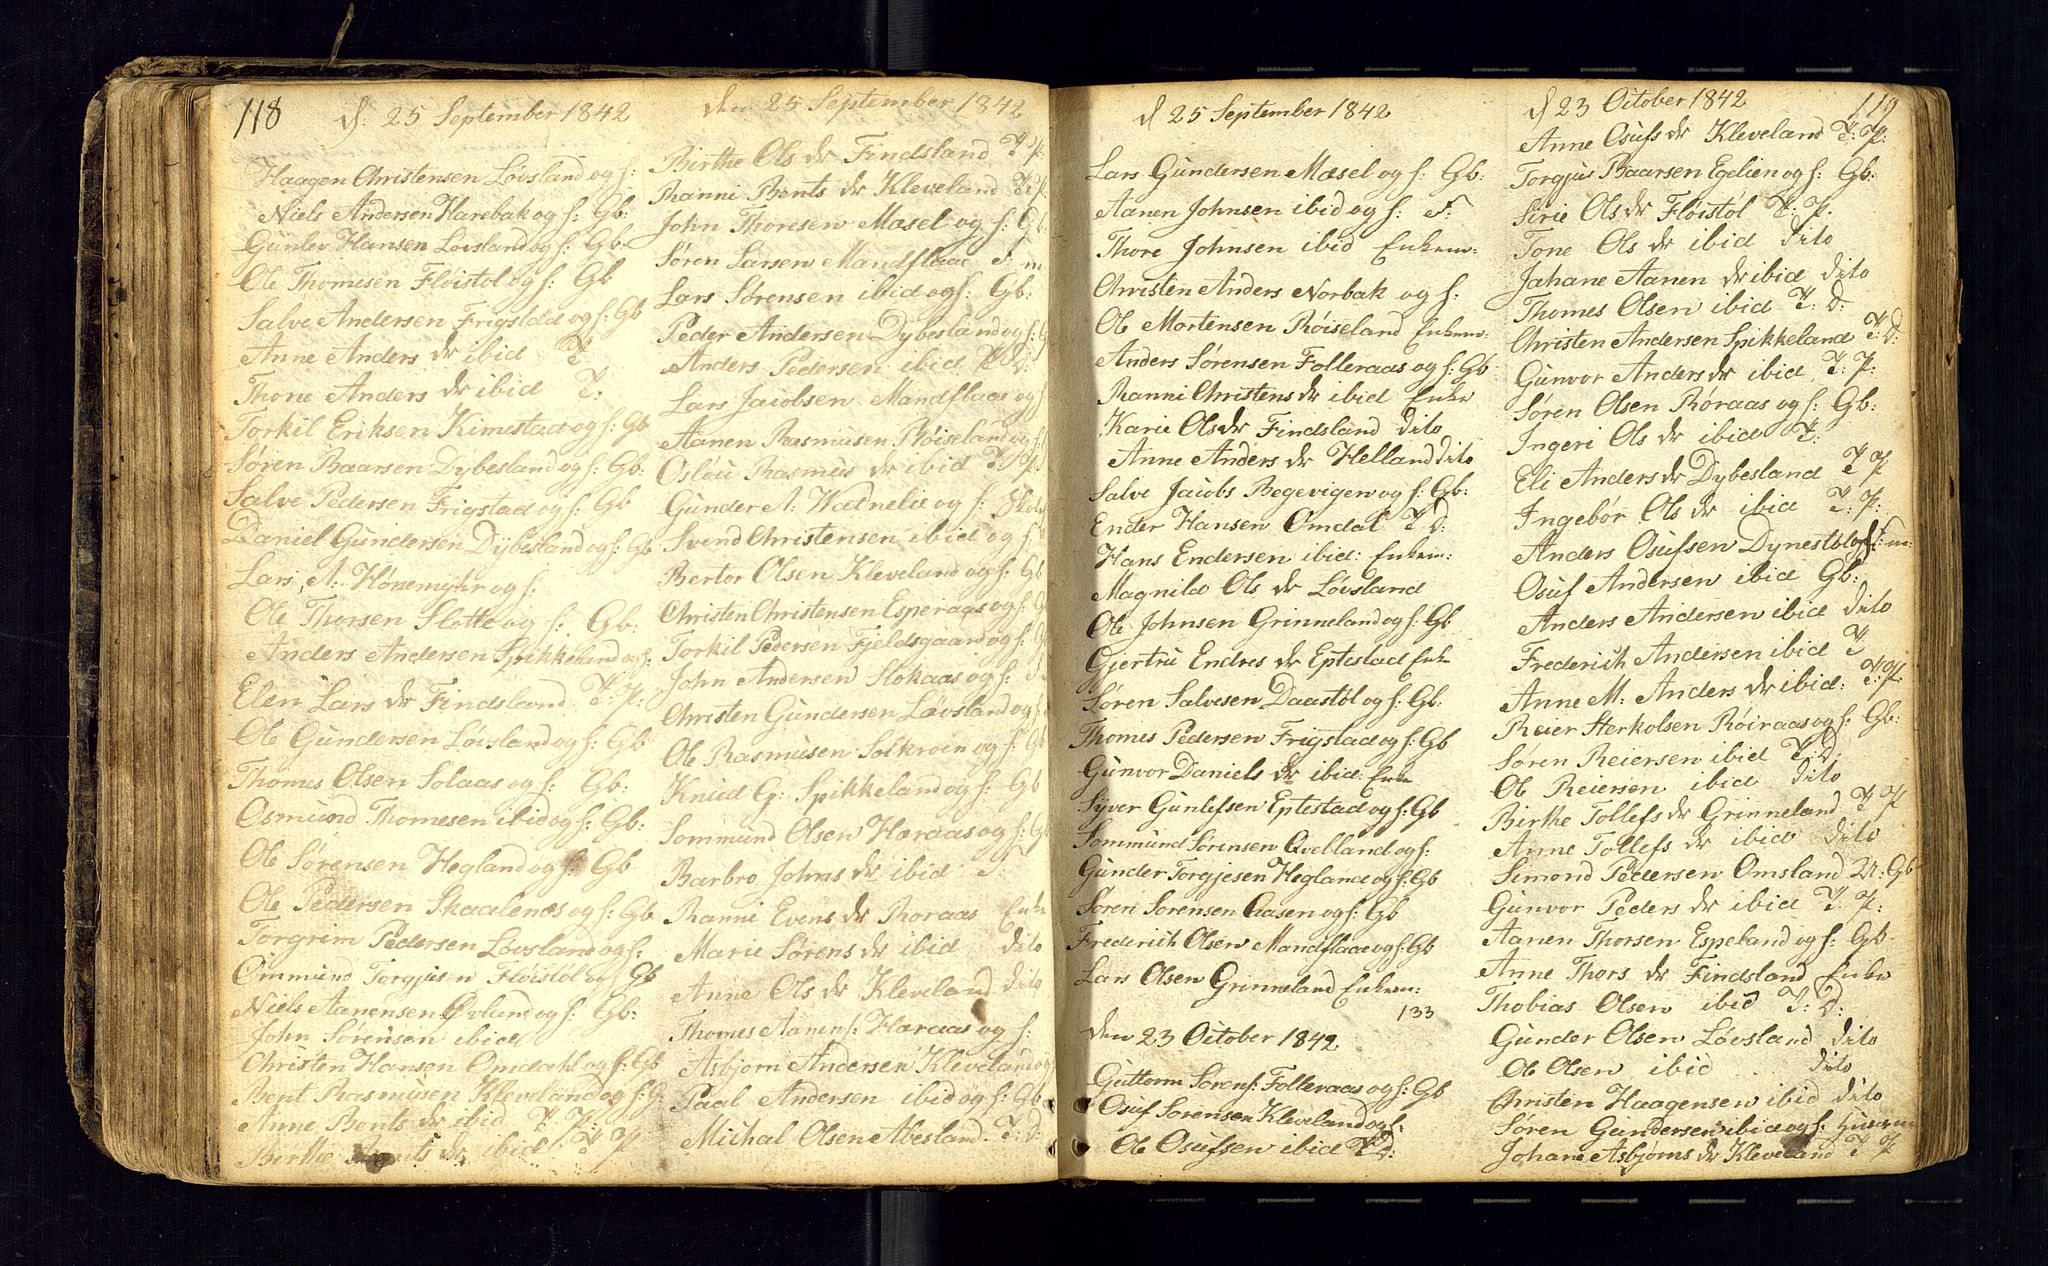 118
d. 25 September 1842
Haagen Christensen Løvsland og f:
Niels Andersen Harebak og f: Gb:
Gunlev Hansen Lovsland og f: Gb:
Ole Thomesen Fløistøl og f: Gb
Salve Andersen Frigstad og f: Gb
Anne Anders dr ibid T
Thone Anders dr ibid T:
Torkil Eriksen Kimestad og f: Gb
Søren Baarsen Dybesland og f: Gb:
Salve Pedersen Frigstad og f: Gb
Daniel Gundersen Dybesland og f: Gb
Lars A. Hønemyhr og f:
Ole Thorsen Slotte og f: Gb:
Anders Andersen Spikkeland og f:
Elen Lars dr Findsland T: P:
Ole Gundersen Løvsland og f: Gb
Thomes Olsen Solaas og f: Gb:
Osmund Thomesen ibid og f: Gb:
Ole Sørensen Hegland og f: Gb
Ole Pedersen Skaalenes og f: Gb
Torgrim Pedersen Løvsland og f:
Ommund Torgjusen Fløistøl og Gb
Niels Aanensen Øvland og f: Gb:
John Sørensen ibid
Christen Hansen Omdahl og f: Gb
Bent Rasmusen Kleveland og f: G
Anne Bents dr ibid T: P:
Birthe Bents dr ibid T P
den 25 September 1842
Birthe Ols dr Findsland T P
Ranni Bents dr Kleveland T: P:
John Thoresen Mæsel og f: Gb
Søren Larsen Mandflaae F: m
Lars Sørensen ibid og f: Gb:
Peder Andersen Dybesland og f: G
Anders Pedersen ibid T D:
Lars Jacobsen Mandflaae og f
Aanen Rasmusen Røiseland og f:
Osløu Rasmus dr ibid T: P
Gunder A: Watnelie og f:
Svend Christensen ibid og f:
Bertor Olsen Kleveland og f: Gb
Christen Christensen Esperaas og f: G
Torkil Pedersen Fjeldsgaard og f: G
John Andersen Stokaas og f:
Christen Gundersen Løvsland og f
Ole Rasmusen Solkroin og f: Gb
Knud G: Spikkeland og f: Gb
Sommund Olsen Hæraas og f: Gb
Barbro Johns dr ibid F:
Ranni Evens dr Roraas Enke
Marie Sørens dr ibid dito
Anne Ols dr Kleveland dito
Thomes Aanens: Hæraas og f:
Asbjørn Andersen Kleveland og
Paal Andersen ibid og f: Gb
Michal Olsen Abesland T: D:
d 25 September 1842
Lars Gundersen Mæsel og f: Gb:
Aanen Johnsen ibid og f: F:
Thore Johnsen ibid Enkem:
Christen Anders Norbak og f:
Ole Mortensen Røiseland Enkem:
Anders Sørensen Folleraas og f: Gb
Ranni Christens dr ibid Enke
Karie Ols dr Findsland dito
Anne Anders dr Helland dito
Salve Jacobs Begevigen og f: Gb:
Ender Hansen Omdal T D:
Hans Endersen ibid: Enkem:
Magnild Ols dr Løvsland
Ole Johnsen Grinneland og f: Gb
Gjertru Endres dr Eptestad Enke
Søren Salvesen Daastøl og f: Gb:
Thomes Pedersen Frigstad og f: Gb
Gunvor Daniels dr ibid: Enke
Syver Gunlefsen Eptestad og f: Gb
Sommund Sørensen Qvelland og f:
Gunder Torgjesen Hegland og f: Gb
Søren Sorensen Aasen og f: Gb
Frederich Olsen Mandflaae og f: Gb
Lars Olsen Grinneland Enkem:
133
den 23 October 1842
Guttorm Sørens: Folleraas og f: Gb
Osuf Sorensen Kleveland og f:
Ole Osufsen ibid T D:
d 23 October 1842
119
Anne Osufs dr Kleveland T: P:
Torgjus Baarsen Egelien og f: Gb:
Sirie Ols dr Fløistøl T: P:
Tone Ols dr ibid dito
Jahane Aanen dr ibid dito
Thomes Olsen ibid T: D:
Christen Andersen Spikkeland T: D:
Gunvor Anders dr ibid T: P:
Søren Olsen Røraas og f: Gb:
Ingeri Ols dr ibid T:
Eli Anders dr Dybesland T P
Ingebør Ols dr ibid T: P:
Anders Osufsen Dynestøl og f: F: m:
Osuf Andersen ibid Gb:
Anders Andersen ibid dito
Frederich Andersen ibid T
Anne M: Anders dr ibid: T: P:
Reier Herkolsen Røiraas og f: Gb:
Søren Reiersen ibid T D:
Ole Reiersen ibid dito
Birthe Tollefs dr Grinneland T P
Anne Tollefs dr ibid dito
Simond Pedersen Omsland U: Gb
Gunvor Peders dr ibid T: P:
Aanen Thorsen Espeland og f: Gb
Anne Thors dr Findsland Enke
Thobias Olsen ibid T: D:
Gunder Olsen Løvsland dito
Ole Olsen ibid dito
Christen Haagensen ibid dito
Søren Gundersen ibid og f: Husm
Johane Asbjørns dr Kleveland T P